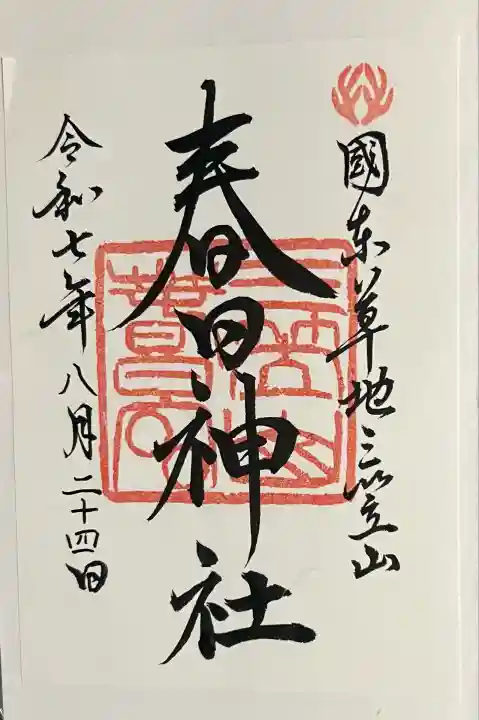 國東草地三笠山
春日神社
令和七年八月二十四日